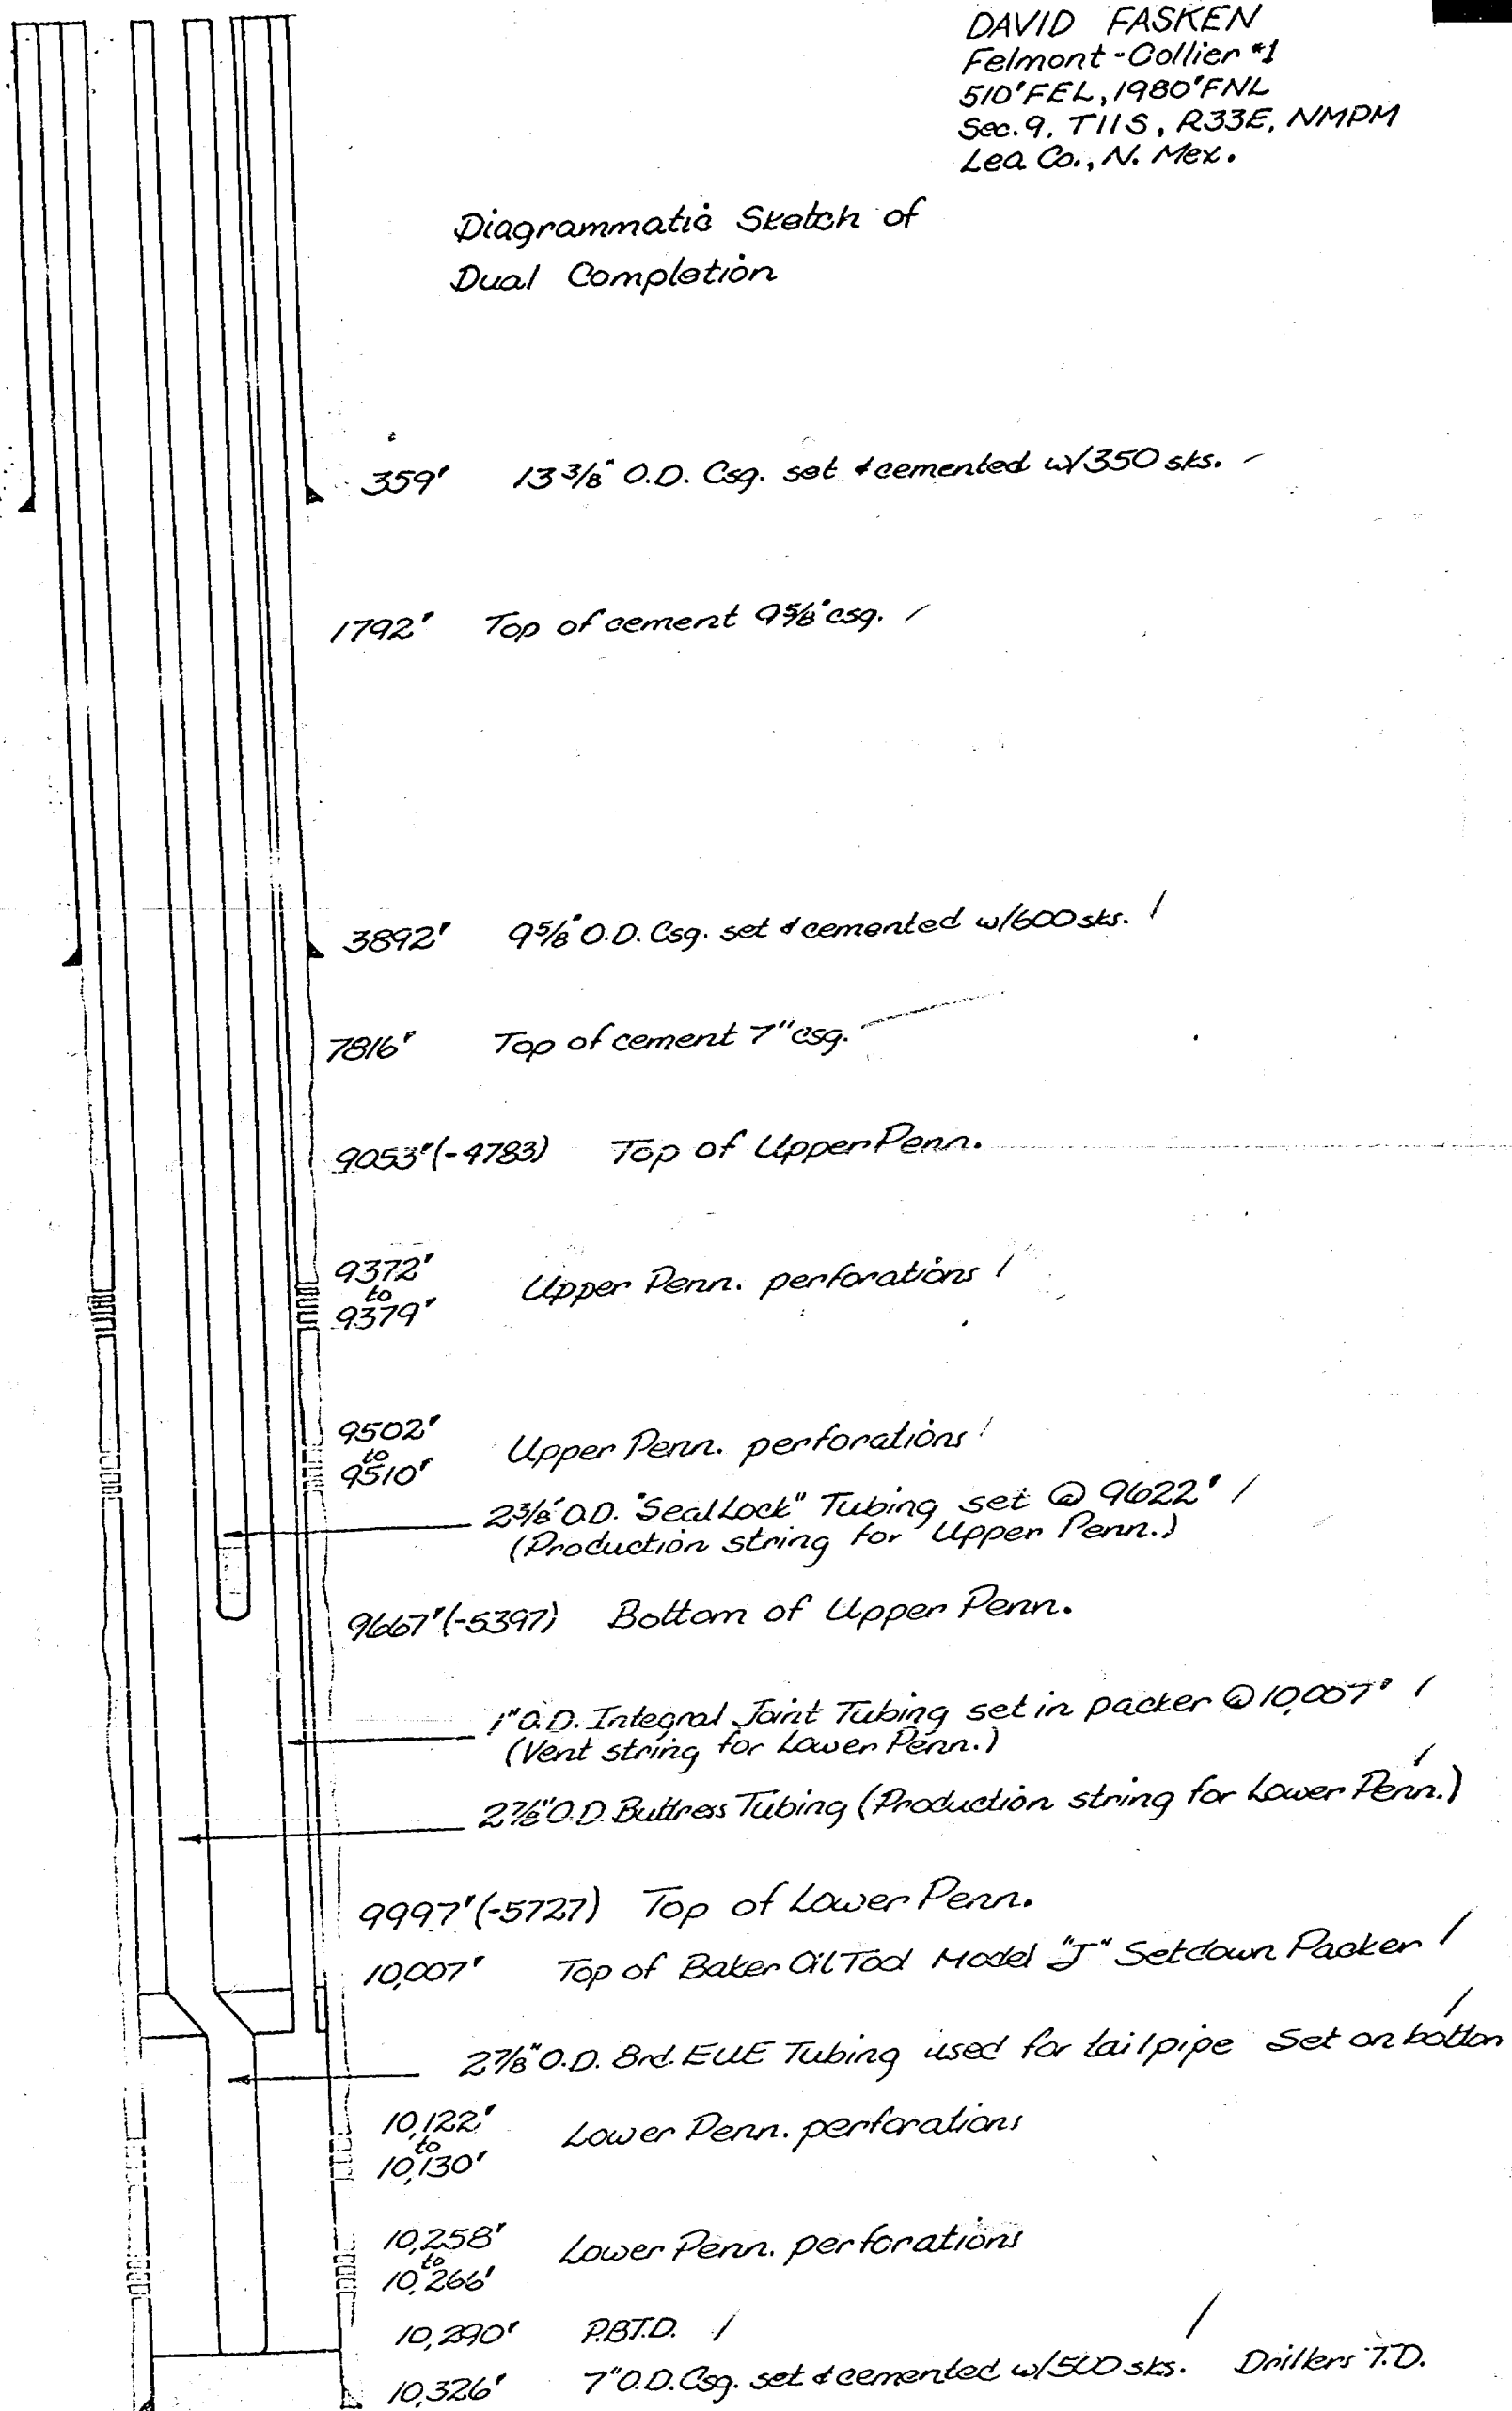 DAVID FASKEN
Felmont-Collier #1
510' FEL, 1980' FNL
Sec. 9, T11S, R33E, NMPM
Lea Co., N. Mex.
Diagrammatic Sketch of
Dual Completion
359' 13 3/8" O.D. Csg. set & cemented w/350 sks.
1792' Top of cement 9 5/8" csg.
3892' 9 5/8" O.D. Csg. set & cemented w/600 sks.
7816' Top of cement 7" csg.
9053' (-4783) Top of Upper Penn.
9372'
to
9379'
Upper Penn. perforations
9502'
to
9510'
Upper Penn. perforations
2 3/8" O.D. "Seal Lock" Tubing set @ 9622'
(Production string for Upper Penn.)
9667' (-5397) Bottom of Upper Penn.
1" O.D. Integral Joint Tubing set in packer @ 10,007'
(Vent string for Lower Penn.)
2 7/8" O.D. Buttress Tubing (Production string for Lower Penn.)
9997' (-5727) Top of Lower Penn.
10,007' Top of Baker Oil Tool Model "J" Setdown Packer
2 7/8" O.D. 8rd. EUE Tubing used for tailpipe Set on bottom
10,122'
to
10,130'
Lower Penn. perforations
10,258'
to
10,266'
Lower Penn. perforations
10,290' P.B.T.D.
10,326' 7" O.D. Csg. set & cemented w/500 sks. Drillers T.D.